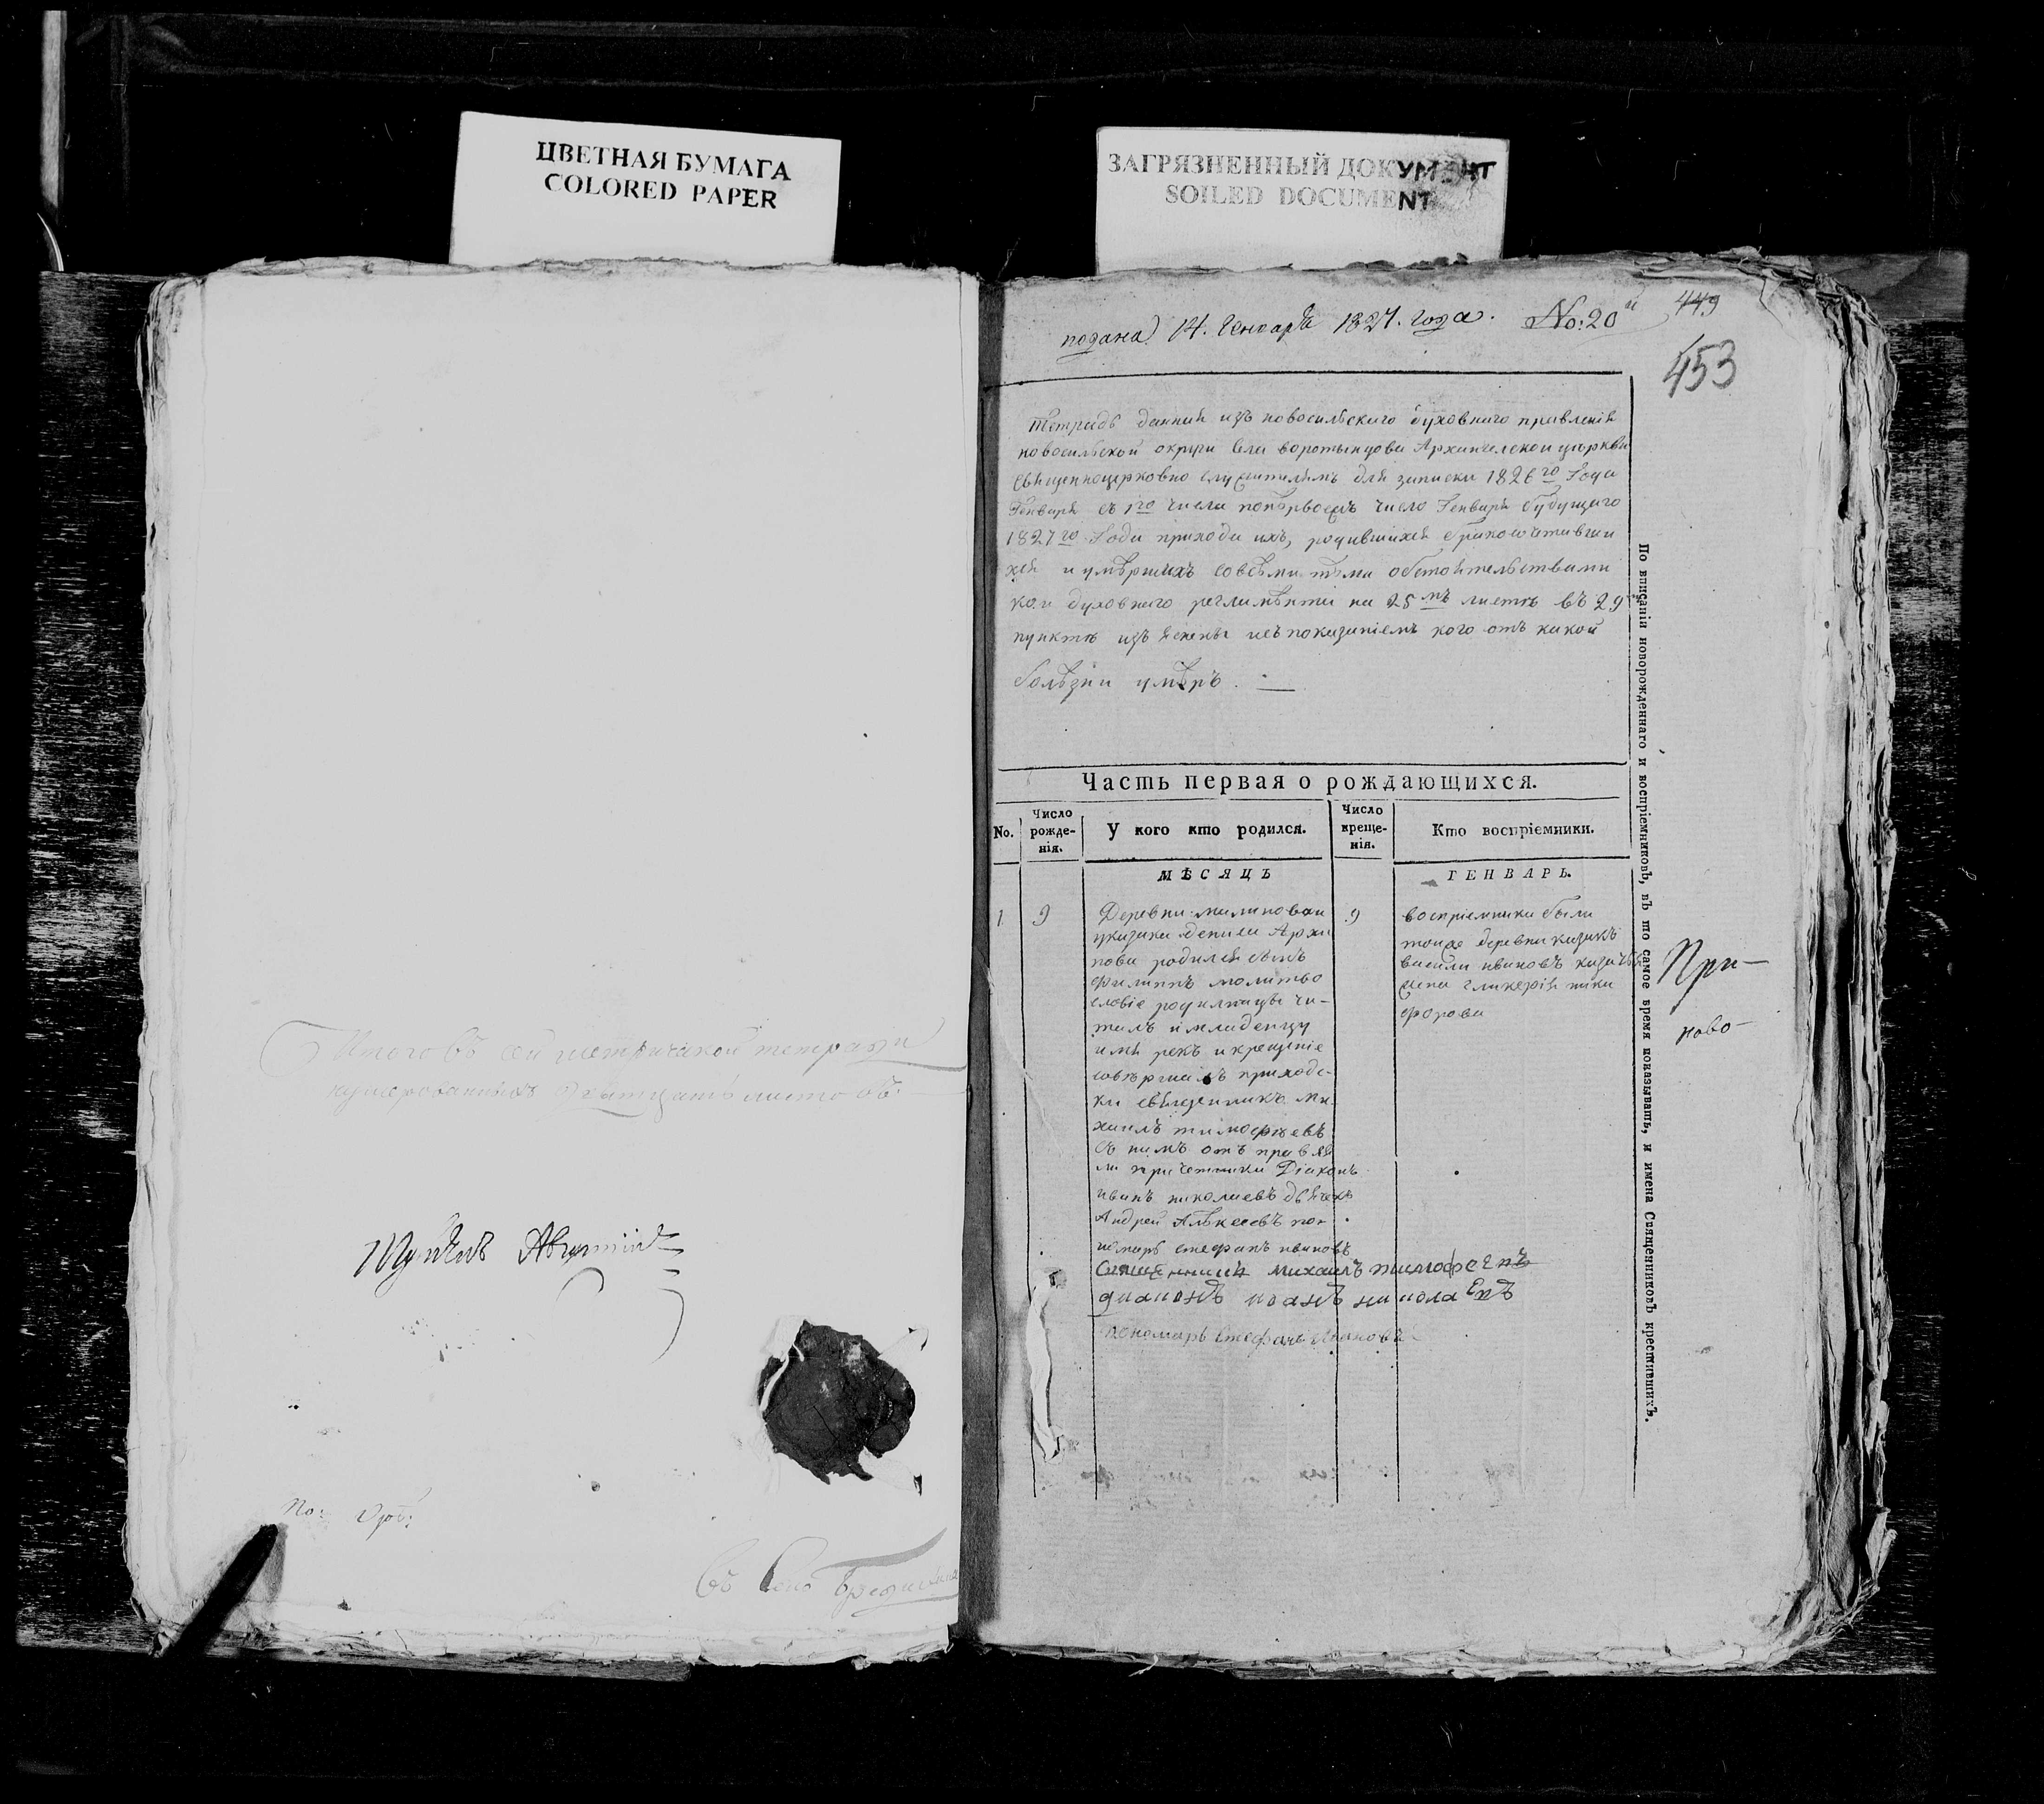 ЦВЕТНАЯ БУМАГА
COLORED PAPER
ЗАГРЯЗНЕННЫЙ ДОКУМЕНТ
SOILED DOCUMENT
Итого въ сей метрической тетради
нумерованныхъ листовъ
No:
Въ Село
подана 14. Генваря 1827. года. No: 20й
449
453
Тетрадь данная изъ новосильскаго духовнаго правленія
новосильской округи села воротынцова Архангелской церкви
священноцерковно служителямъ для записки 1826го Года
Генваря съ 1го числа поперьвое число Генваря будущаго
1827го Года прихода ихъ, родившихся бракосочетавши
хся и умершихъ со всеми теми обстоятельствами
кои духовнаго регламента на 25мъ листе въ 29
пункте изъ яснены показаніемъ кого отъ какой
болѣзни умѣръ.
Часть первая о рождающихся.
No.
Число рожденія.
У кого кто родился.
Число крещенія.
Кто воспріемники.
МѢСЯЦЪ
ГЕНВАРЬ.
1
9
Деревни малиновои
указака данила Архи
пова родился сынъ
Филиппъ молитво
словіе родилницы чи-
талъ и младенцу
имя рекъ и крещеніе
совершилъ приходс-
ки священникъ Ми
хаилъ тимофеевъ
съ нимъ отъ правля
ли причетники Діаконъ
иванъ николаевъ дьячекъ
Андрей Алексеевъ по-
номарь стефанъ ивановъ
9
воспріемники были
тоиже деревни казакъ
васили ивановъ казачья
жена гликерія ники
форова
Священникъ михаилъ тимофеевъ
диаконъ иоанъ николаевъ
пономарь Стефанъ Ивановъ
При-
ново-
По вписаніи новорожденнаго и воспріемниковъ, въ то самое время показывать, и имена Священниковъ крестившихъ.